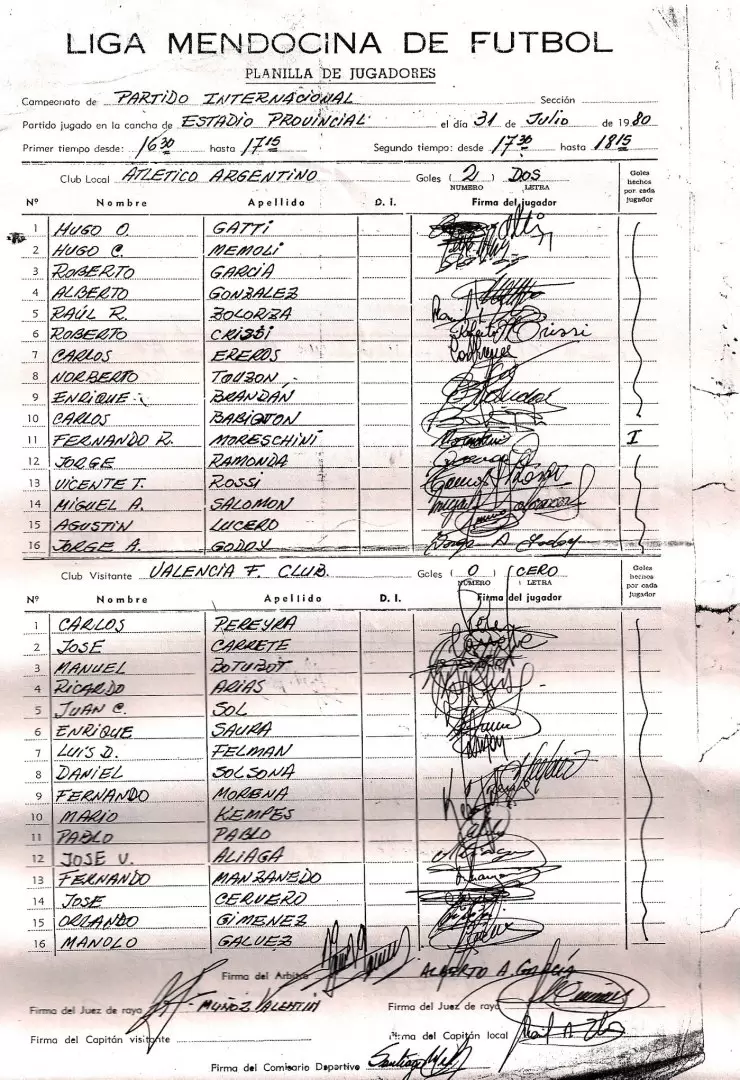 LIGA MENDOCINA DE FUTBOL
PLANILLA DE JUGADORES
Campeonato de PARTIDO INTERNACIONAL Sección
Partido jugado en la cancha de ESTADIO PROVINCIAL el día 31 de Julio de 1980
Primer tiempo desde: 16 30 hasta 17 15 Segundo tiempo: desde 17 30 hasta 18 15
Club Local ATLETICO ARGENTINO Goles ( 2 ) DOS
NUMERO LETRA
Goles hechos por cada jugador
Nº Nombre Apellido D. I. Firma del jugador
1 HUGO O. GATTI
2 HUGO C. MEMOLI
3 ROBERTO GARCIA
4 ALBERTO GONZALEZ
5 RAÚL R. BOLORIZA
6 ROBERTO CRISSI Roberto Crissi
7 CARLOS EREROS
8 NORBERTO TOUZON
9 ENRIQUE BRANDÁN
10 CARLOS BABIGTON
11 FERNANDO R. MORESCHINI I
12 JORGE RAMONDA
13 VICENTE T. ROSSI
14 MIGUEL A. SALOMON
15 AGUSTIN LUCERO
16 JORGE A. GODOY Jorge A Godoy
Club Visitante VALENCIA F. CLUB. Goles ( 0 ) CERO
NUMERO LETRA
Goles hechos por cada jugador
Nº Nombre Apellido D. I. Firma del jugador
1 CARLOS PEREYRA
2 JOSE CARRETE
3 MANUEL BOTUBOT
4 RICARDO ARIAS
5 JUAN C. SOL
6 ENRIQUE SAURA
7 LUIS D. FELMAN
8 DANIEL SOLSONA
9 FERNANDO MORENA
10 MARIO KEMPES
11 PABLO PABLO
12 JOSE V. ALIAGA
13 FERNANDO MANZANEDO
14 JOSE CERVERO
15 ORLANDO GIMENEZ
16 MANOLO GALVEZ
Firma del Arbitro ALBERTO A. GARCÍA
Firma del Juez de raya MUÑOZ VALENTIN Firma del Juez de raya
Firma del Capitán visitante Firma del Capitán local
Firma del Comisario Deportivo Santiago